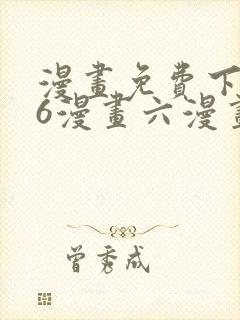 漫畫免費下
6漫畫六漫畫
曾秀成